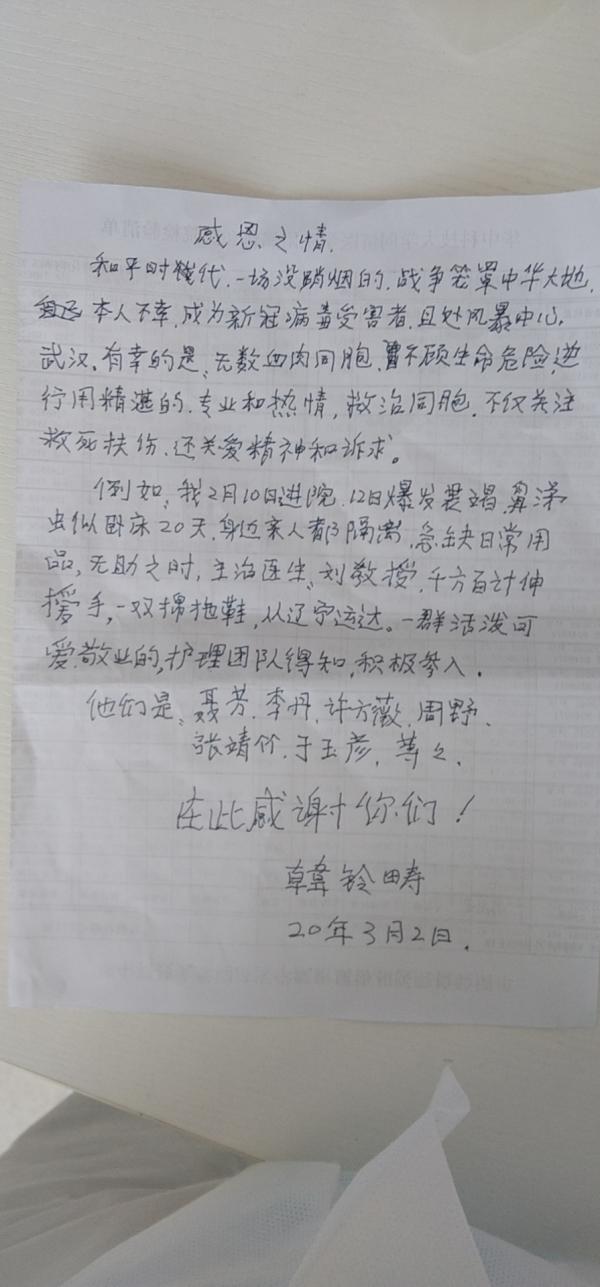 感恩之情.
和平时代.一场没硝烟的.战争笼罩中华大地,
本人不幸,成为新冠病毒受害者,且处风暴中心,
武汉,有幸的是,无数血肉同胞,冒不顾生命危险,逆
行用精湛的,专业和热情,救治同胞,不仅关注
救死扶伤,还关爱精神和诉求。
例如,我2月10日进院,12日爆发衰竭,鼻涕
虫似卧床20天,身近亲人都隔离,急缺日常用
品,无助之时,主治医生,刘教授,千方百计伸
援手,一双棉拖鞋,从辽宁运达。一群活泼可
爱,敬业的,护理团队得知,积极参入.
他们是,聂芳,李丹,许方薇,周野、
张靖竹,于玉彦,等之.
在此感谢你们!
韩铃畴
20年3月2日.